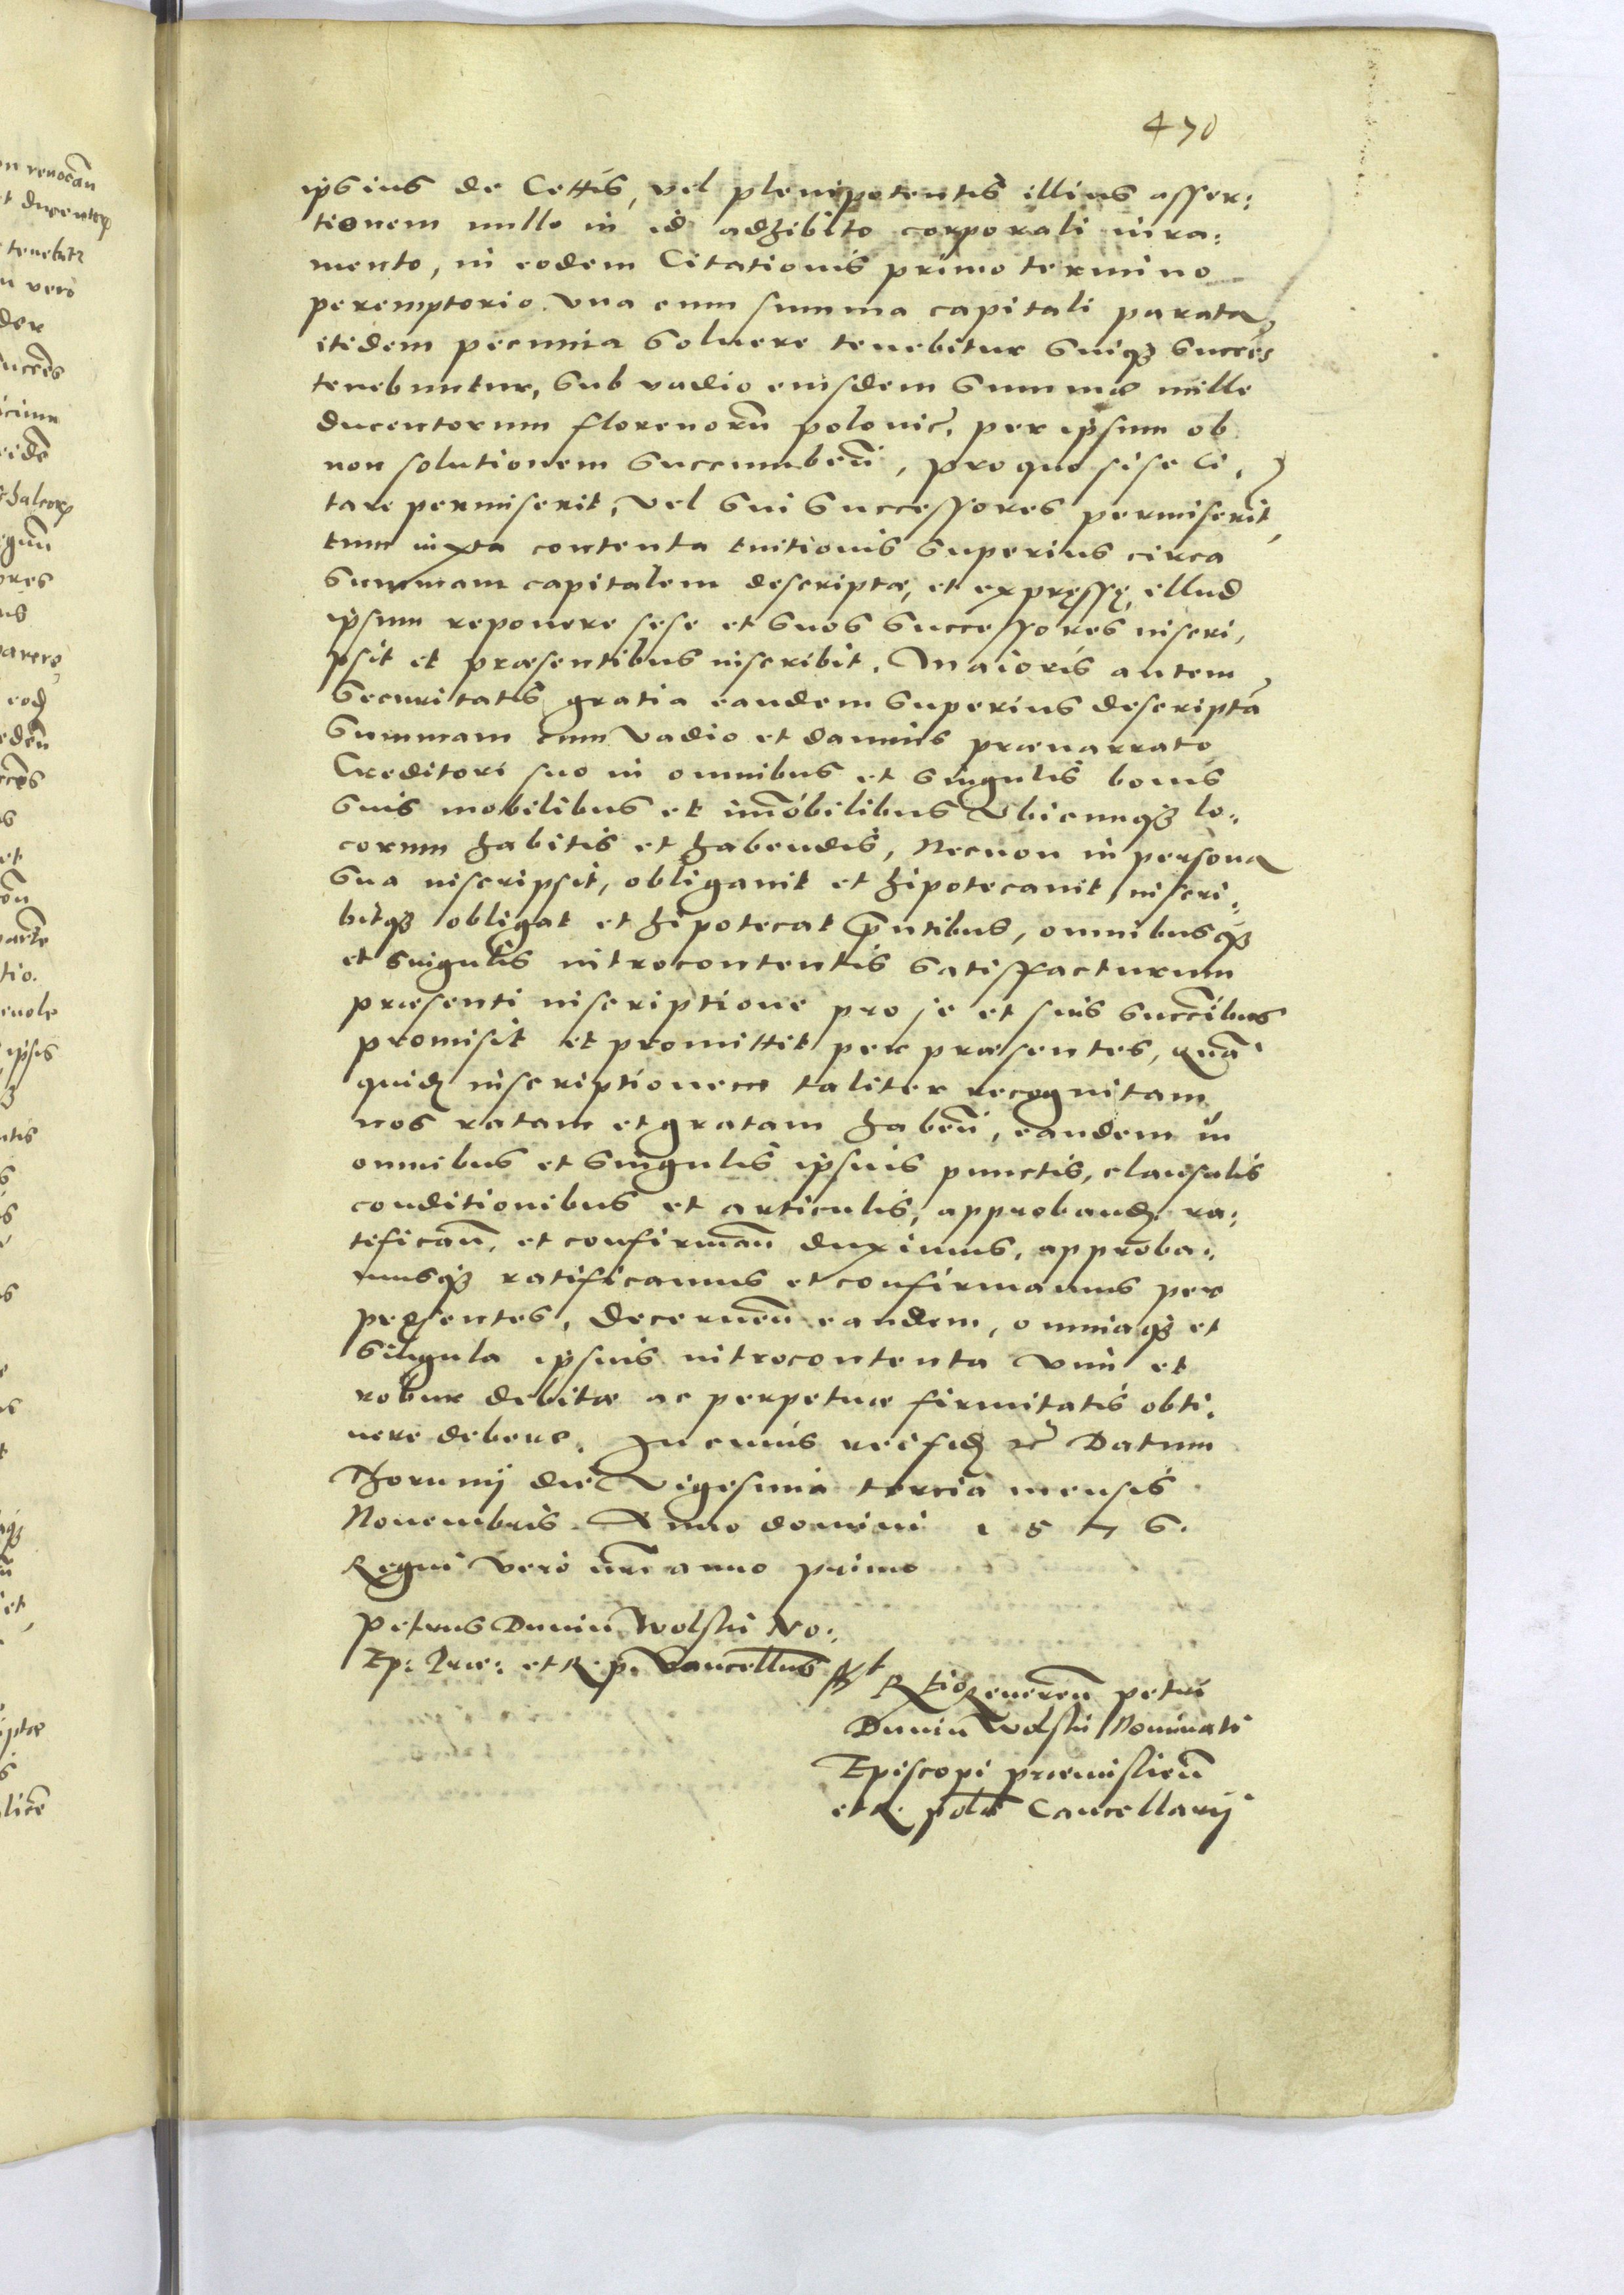 470
ipsius de Cettis, vel plenipotentis illius asser:
tionem nullo in id adhibito corporali iura:
mento, in eodem Citationis primo termino
peremptorio vna cum summa capitali parata
itidem pecunia soluere tenebitur suiqꝫ succēs
tenebuntur, sub vadio eiusdem summæ mille
ducentorum florenorū polonic̄, per ipsum ob
non solutionem succumbeñ, pro quo si se ci,
tare permiserit, vel sui successores permiserīt,
tum iuxta contenta tuitionis superius circa
summam capitalem descriptæ, et expręssę, illud
ipsum reponere sese et suos successores inscri,
psit et præsentibus inscribit. Maioris autem
securitatis gratia eandem superius descriptā
summam cum vadio et damnis prænarrato
Creditori suo in omnibus et singulis bonis
suis mobilibus et im̄obilibus vbicunqꝫ lo:
corum habitis et habendis, Necnon in persona
sua inscripsit, obligauit et hipotecauit inscri:
bitqꝫ obligat et hipotecat p̄ntibus, omnibusqꝫ
et singulis introcontentis satisfacturum
præsenti inscriptione pro se et suis succēibus
promisit et promittit per præsentes, quā
quidꝫ inscriptionem taliter recognitam
nos ratam et gratam habeñ, eandem in
omnibus et singulis ipsius punctis, clausulis
conditionibus et articulis, approband. ra:
tificañ, et confirmañ duximus, approba:
musqꝫ ratificamus et confirmamus per
pręsentes, decerneñ eandem, omniaqꝫ et
singula ipsius introcontenta vim et
robur debitæ ac perpetuæ firmitatis obti,
nere debere. In cuius rei fidꝫ ꝛc̄ Datum
Thorunij die Vigesima tercia mensis
Nouembris Anno domini 1576.
Regni vero nr̄i anno primo
Petrus Dunin Wolski No:
Ep: Præ: et R. p. Vancellus sst
R̄tio Reuereñ Petri
Dunin Wolski Nominati
Episcopi præmislieñ
et R. polē Cancellarij